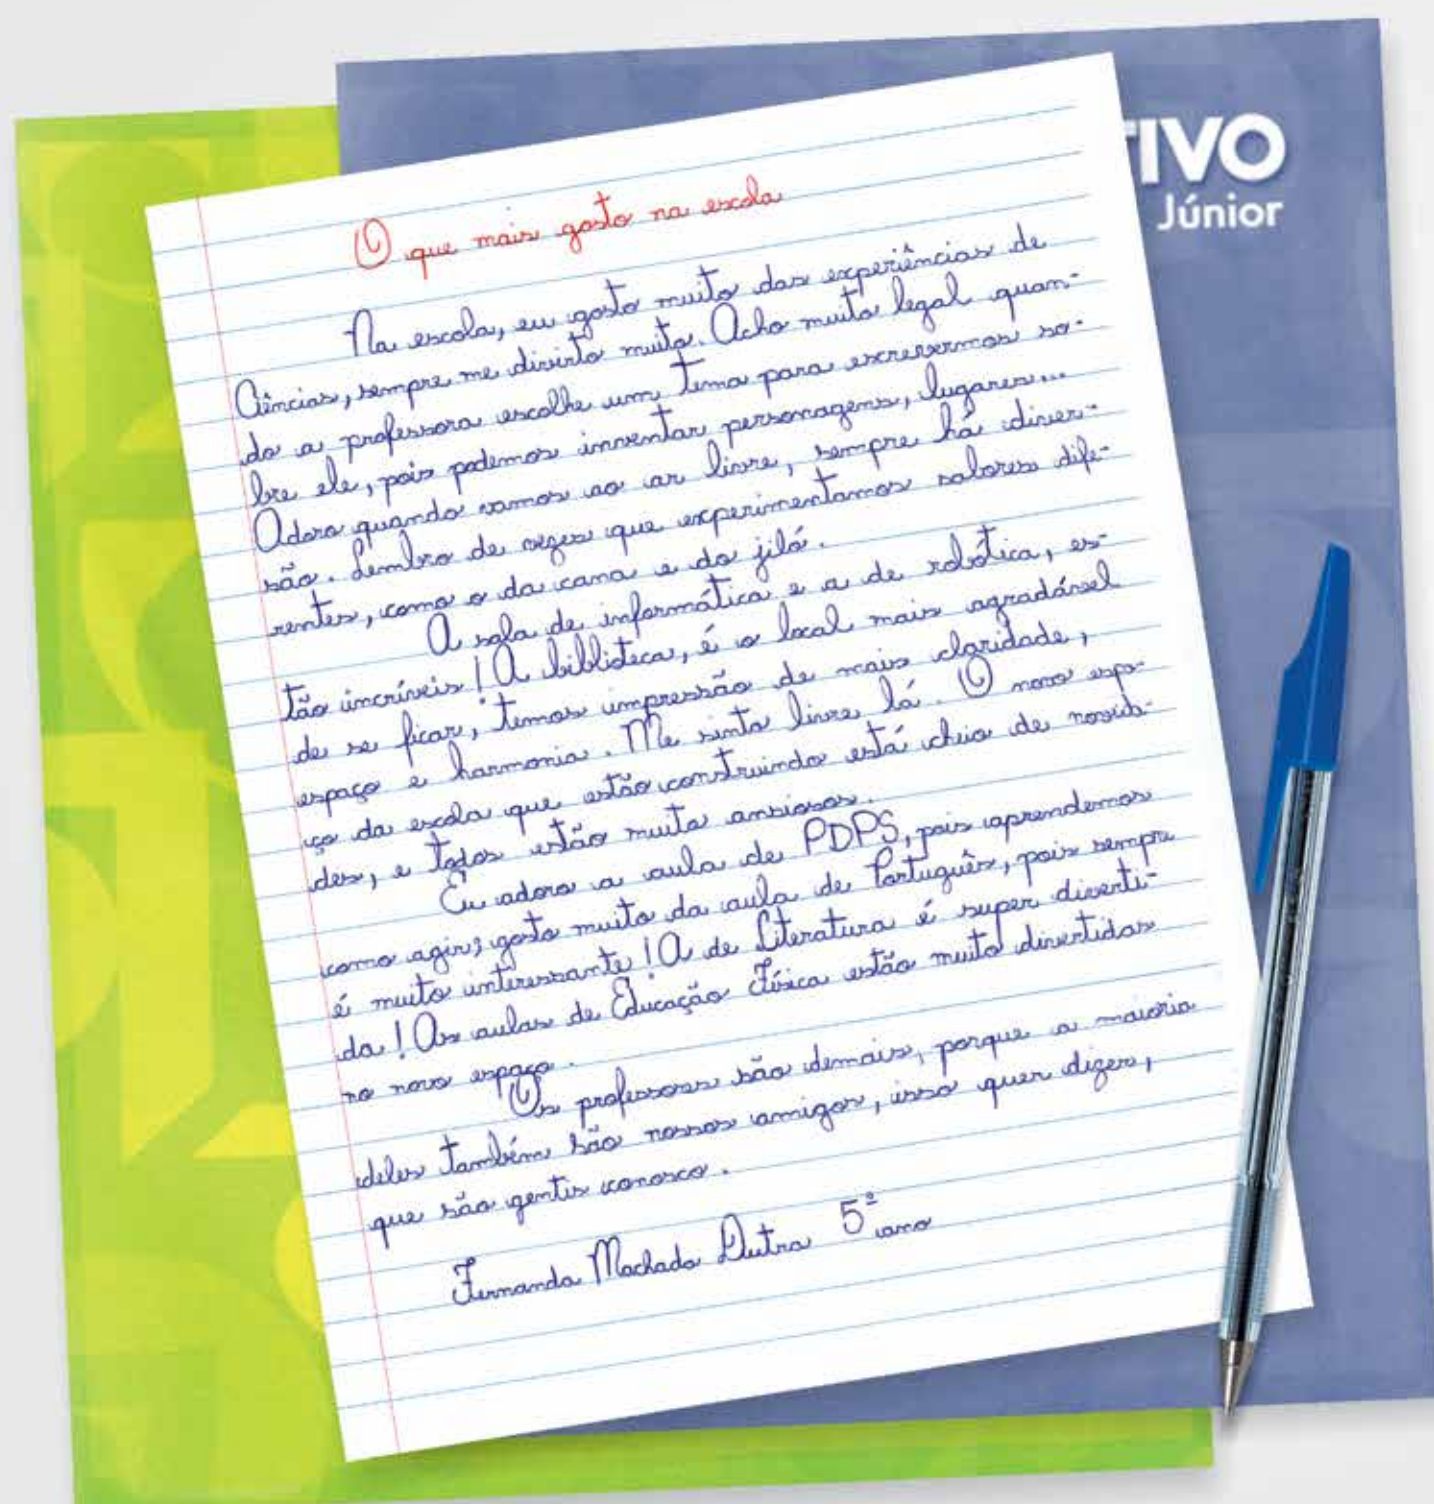 TIVO
Júnior
O que mais gosto na escola
Na escola, eu gosto muito das experiências de
Ciências, sempre me divirto muito. Acho muito legal quan-
do a professora escolhe um tema para escrevermos so-
bre ele, pois podemos inventar personagens, lugares...
Adoro quando vamos ao ar livre, sempre há diver-
são. Lembro de vezes que experimentamos sabores dife-
rentes, como o da cana e do jiló.
A sala de informática e a de robótica, es-
tão incríveis! A biblioteca, é o local mais agradável
de se ficar, temos impressão de mais claridade,
espaço e harmonia. Me sinto livre lá. O novo espa-
ço da escola que estão construindo está cheio de novida-
des, e todos estão muito ansiosos.
Eu adoro a aula de PDPS, pois aprendemos
como agir; gosto muito da aula de Português, pois sempre
é muito interessante! A de Literatura é super diverti-
da! As aulas de Educação Física estão muito divertidas
no novo espaço.
Os professores são demais, porque a maioria
deles também são nossos amigos, isso quer dizer,
que são gentis conosco.
Fernanda Machado Dutra 5º ano